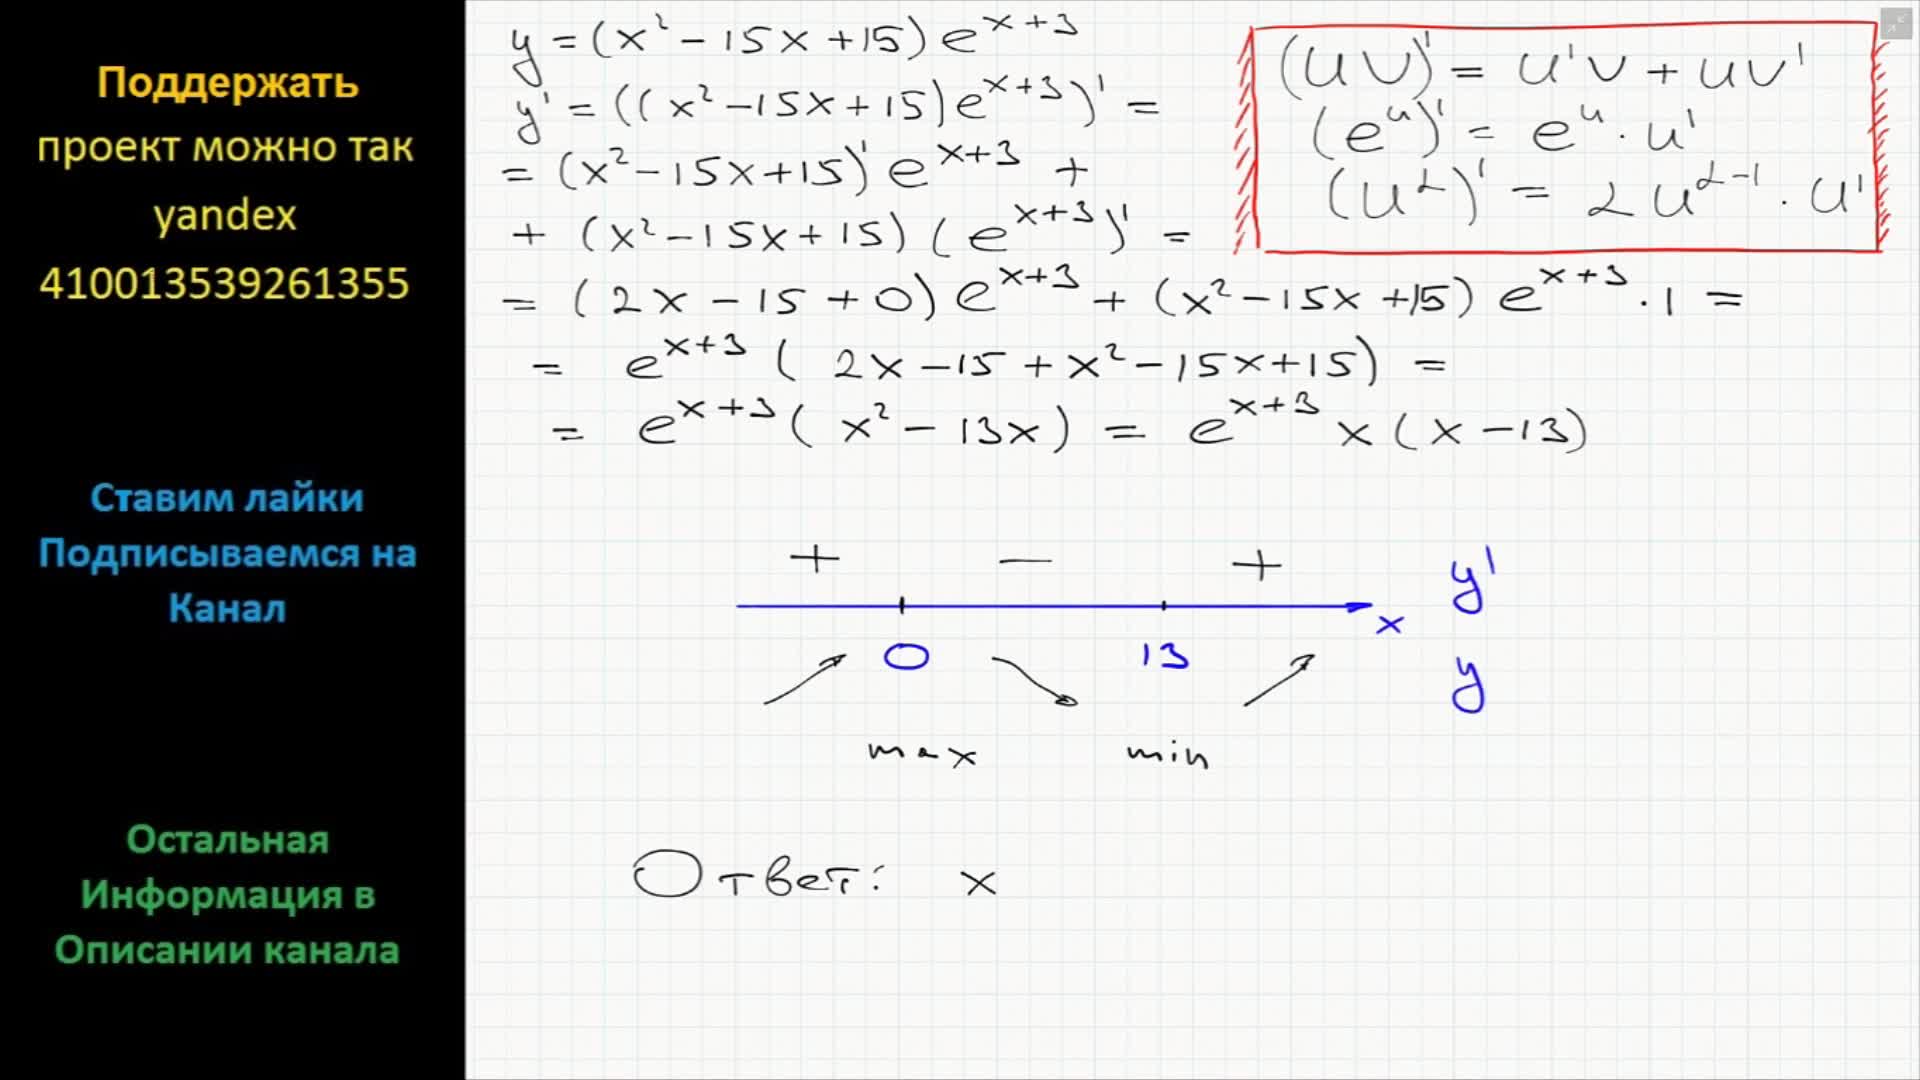 Поддержать
проект можно так
yandex
410013539261355
Ставим лайки
Подписываемся на
Канал
Остальная
Информация в
Описании канала
y = (x² - 15x + 15) e^{x+3}
y' = ((x² - 15x + 15) e^{x+3})' =
= (x² - 15x + 15)' e^{x+3} +
+ (x² - 15x + 15) (e^{x+3})' =
= (2x - 15 + 0) e^{x+3} + (x² - 15x + 15) e^{x+3} · 1 =
= e^{x+3} (2x - 15 + x² - 15x + 15) =
= e^{x+3} (x² - 13x) = e^{x+3} x (x - 13)
(uv)' = u'v + uv'
(e^u)' = e^u · u'
(u^α)' = α u^{α-1} · u'
+ − + y'
0 13 x
y
max min
Ответ: x